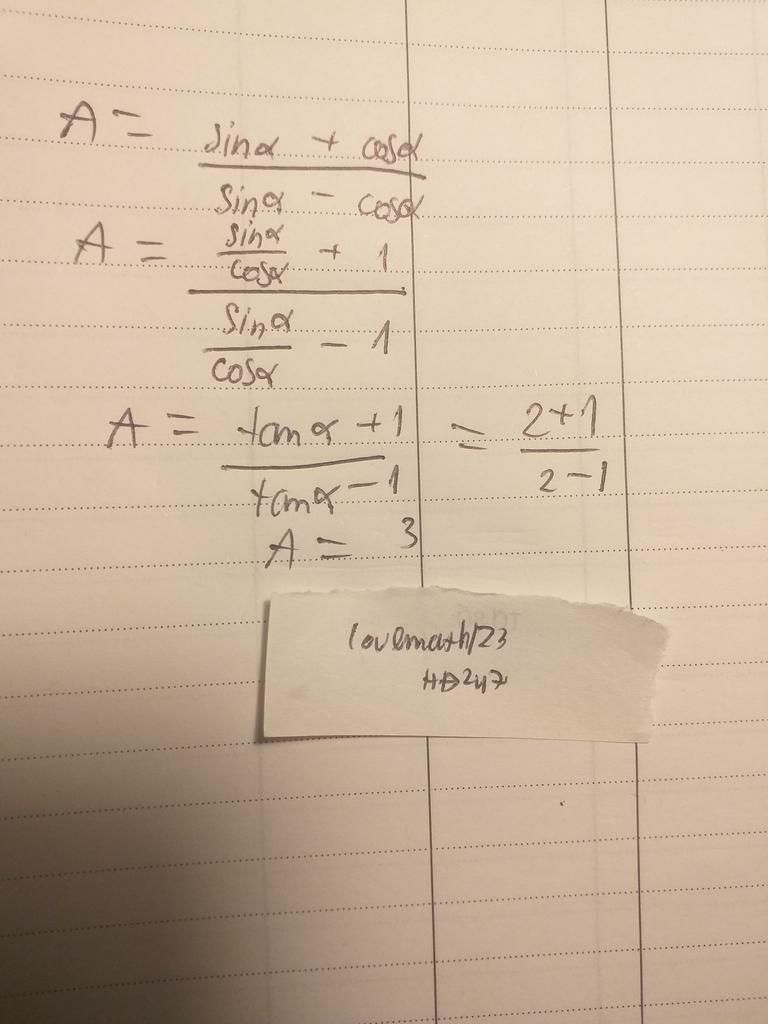 A = sinα + cosα / sinα - cosα
A = sinα/cosα + 1 / sinα/cosα - 1
A = tanα + 1 / tanα - 1 = 2+1 / 2-1
A = 3
lovemath123
HD247